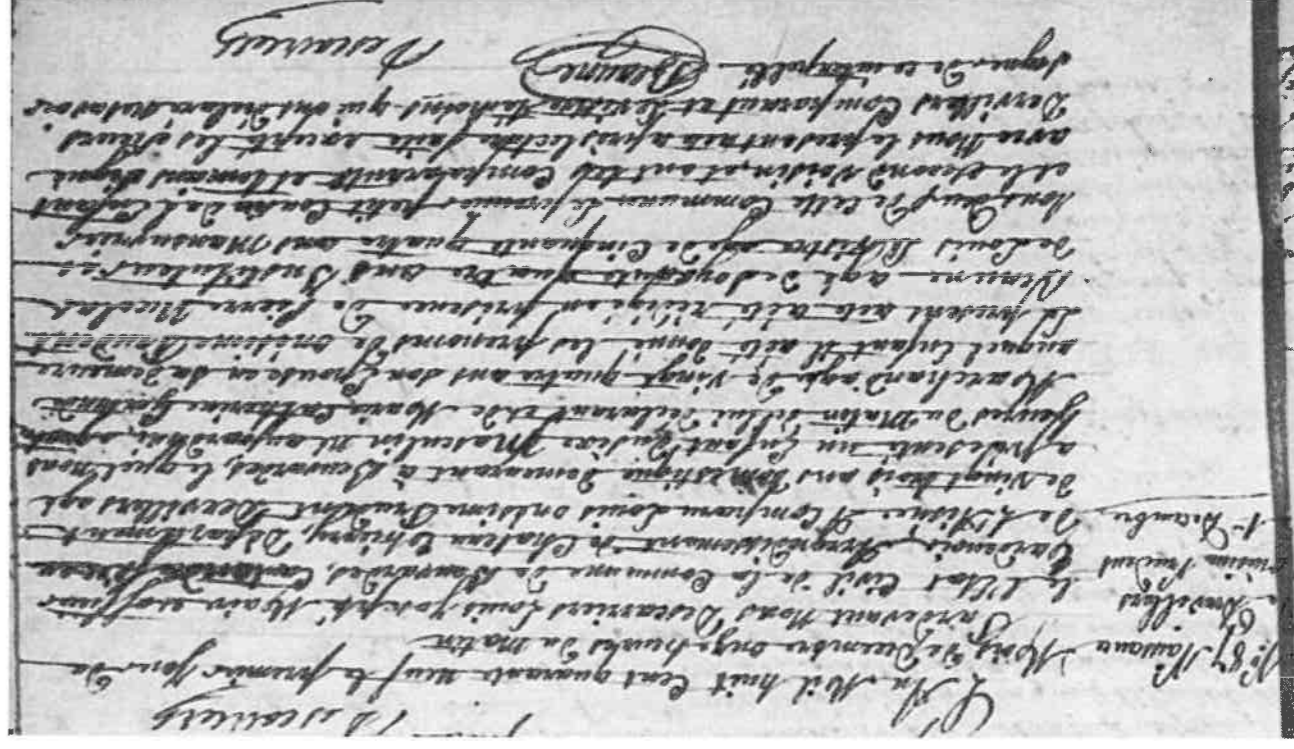 Descarriers
N° 87 Naissance
de Dervillers
onésime Prudent
1er Décembre
L'An Mil huit Cent quarante neuf le premier jour du
Mois de Décembre onze heures du matin
Pardevant Nous Descarriers Louis Joseph Maire et officier
de l'Etat Civil de la Commune de Beuvardes, Canton de
Tardenois, Arrondissement de Chateau thierry, Département
De L'Aisne A Comparu Louis onésime Prudent Dervillers agé
de vingt trois ans Domestique Demeurant à Beuvardes, lequel Nous
a présenté un Enfant du Sexe Masculin né aujourd'hui, à
heures du Matin de lui Déclarant et de Marie Catherine
Marchand agée de vingt quatre ans son Epouse en sa demeure
auquel Enfant il a été donné les prénoms de onésime Prudent
Le présent acte a été rédigé en présence de Pierre Nicolas
Beaune agé de soixante quatre ans Instituteur et
de Louis agé de Cinquante quatre ans Manouvrier
tous deux de cette Commune le premier petit Cousin de l'Enfant
et le second Voisin, et ont les Comparants et temoins signé
avec Nous le présent acte après lecture faite excepté les sieurs
Dervillers Comparant et temoins qui ont Déclaré ne savoir
signer De ce interpellé
Beaune
Descarriers